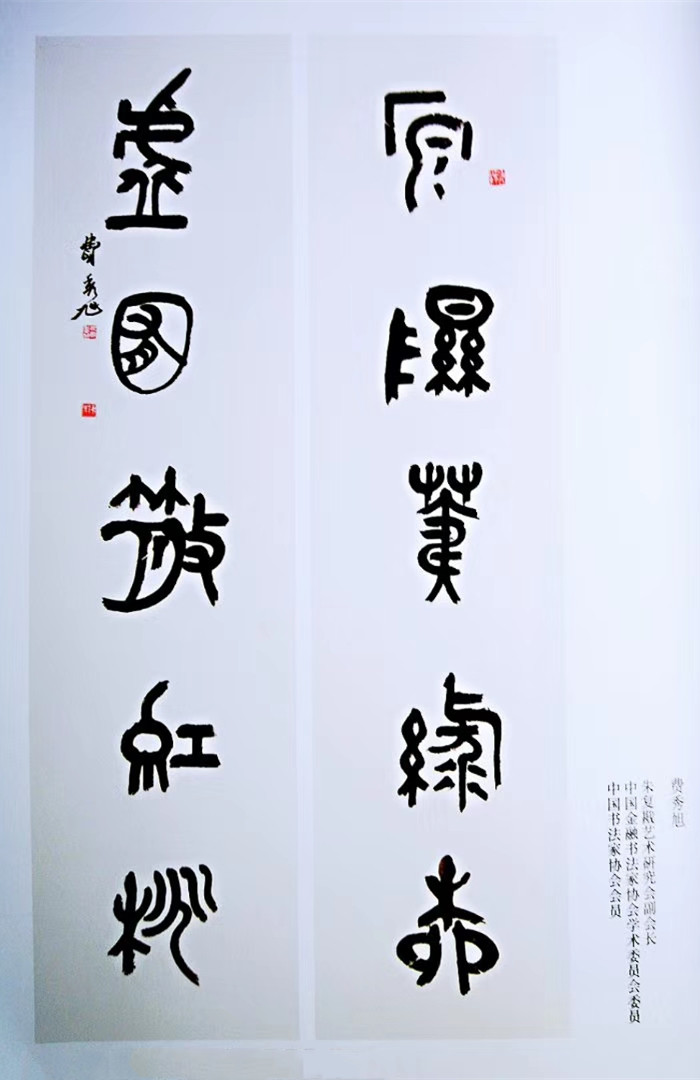 原隰荑綠柳
虛囿散紅桃
費秀旭
费秀旭
朱复戡艺术研究会副会长
中国金融书法家协会学术委员会委员
中国书法家协会会员